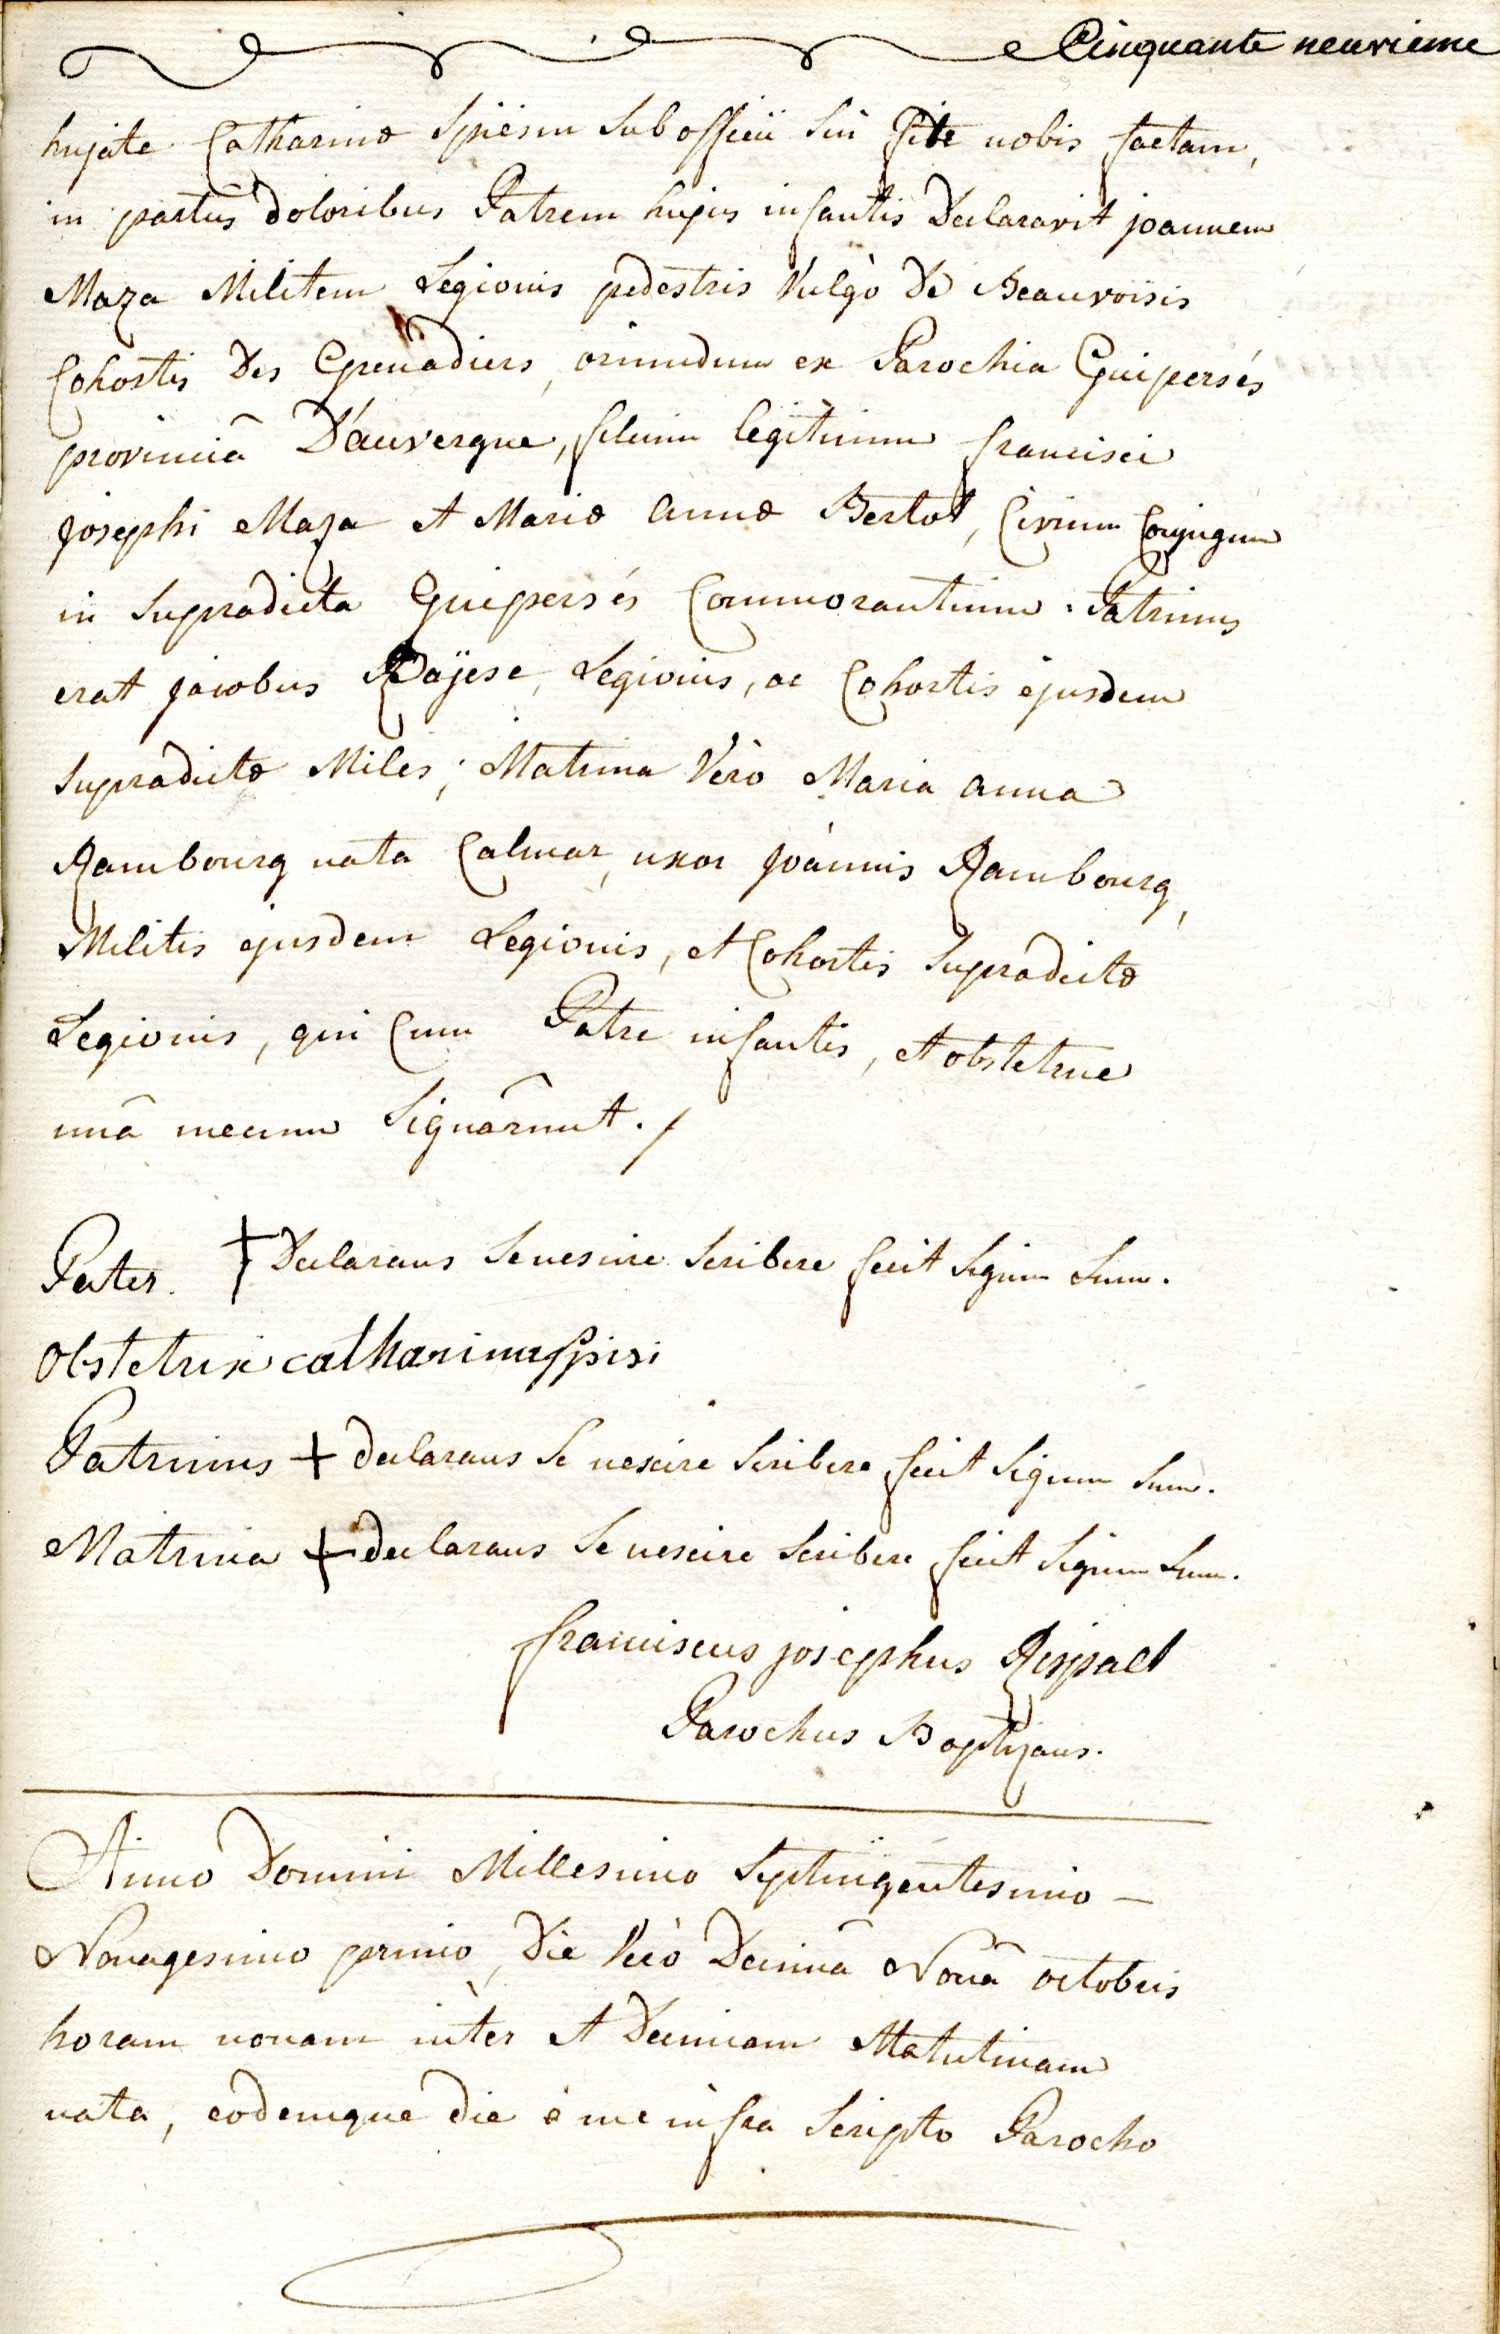 Cinquante neuvieme
hujate Catharinæ Spiesin sub officii sui fide nobis factam,
in partûs doloribus Patrem hujus infantis Declaravit joannem
Maza Militem Legionis pedestris Vulgò De Beauvoisis
Cohortis Des Grenadiers, oriundum ex Parochia Guipersés
provinciâ D'auvergne, filium legitimum francisci
Josephi Maza et Mariæ annæ Bertot, Civium Conjugum
in supradicta Guipersés Commorantium. Patrinus
erat jacobus Rajese, Legionis, ac Cohortis ejusdem
supradictæ Miles; Matrina Verò Maria anna
Rambourg nata Calmar, uxor Joànnis Rambourg,
Militis ejusdem Legionis, et Cohortis supradictæ
Legionis, qui Cum Patre infantis, et obstetrice
unâ mecum signârunt./
Pater. + Declarans se nescire scribere fecit signum suum.
Obstetrix catharina spisi
Patrinus + declarans se nescire scribere fecit signum suum.
Matrina + declarans se nescire scribere fecit signum suum.
franciscus josephus
Parochus Baptizans.
Anno Domini Millesimo Septingentesimo –
Nonagesimo primo, Die Verò Decimâ Nonâ octobris
horam nonam inter et Decimam Matutinam
nata, eodemque die à me infra scripto Parocho